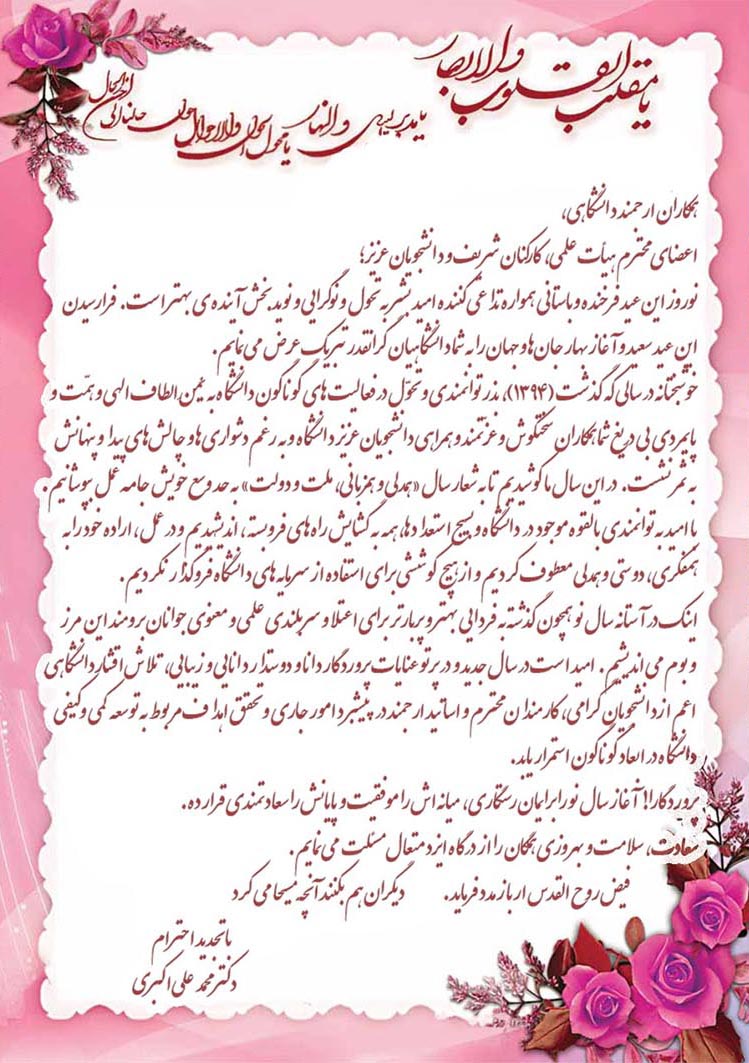 یا مقلب القلوب و الابصار
یا مدبر اللیل و النهار
یا محول الحول و الاحوال
حول حالنا الی احسن الحال
همکاران ارجمند دانشگاهی،
اعضای محترم هیأت علمی، کارکنان شریف و دانشجویان عزیز؛
نوروز این عید فرخنده و باستانی همواره تداعی کننده امید بشر به تحول و نوگرایی و نوید بخش آینده ی بهتر است. فرارسیدن
این عید سعید و آغاز بهار جان ها و جهان را به شما دانشگاهیان گرانقدر تبریک عرض می نمایم.
خوشبختانه در سالی که گذشت (۱۳۹۴)، بذر توانمندی و تحوّل در فعالیت های گوناگون دانشگاه به یمن الطاف الهی و همّت و
پایمردی بی دریغ شما همکاران سختکوش و عزتمند و همراهی دانشجویان عزیز دانشگاه و به رغم دشواری ها و چالش های پیدا و پنهانش
به ثمر نشست. در این سال ما کوشیدیم تا به شعار سال «همدلی و همزبانی، ملت و دولت» به حد وسع خویش جامه عمل بپوشانیم.
با امید به توانمندی بالقوه موجود در دانشگاه و بسیج استعدادها، همه به گشایش راه های فروبسته، اندیشیدیم و در عمل، اراده خود را به
همفکری، دوستی و همدلی معطوف کردیم و از هیچ کوششی برای استفاده از سرمایه های دانشگاه فروگذار نکردیم.
اینک در آستانه سال نو همچون گذشته به فردایی بهتر و پربارتر برای اعتلا و سربلندی علمی و معنوی جوانان برومند این مرز
و بوم می اندیشیم. امید است در سال جدید و در پرتو عنایات پروردگار دانا و دوستدار دانایی و زیبایی، تلاش اقشار دانشگاهی
اعم از دانشجویان گرامی، کارمندان محترم و اساتید ارجمند در پیشبرد امور جاری و تحقق اهداف مربوط به توسعه کمی و کیفی
دانشگاه در ابعاد گوناگون استمرار یابد.
پروردگارا! آغاز سال نو را برایمان رستگاری، میانه اش را موفقیت و پایانش را سعادتمندی قرار ده.
سعادت، سلامت و بهروزی همگان را از درگاه ایزد متعال مسئلت می نمایم.
فیض روح القدس ار باز مدد فرماید. دیگران هم بکنند آنچه مسیحا می کرد
با تجدید احترام
دکتر محمد علی اکبری